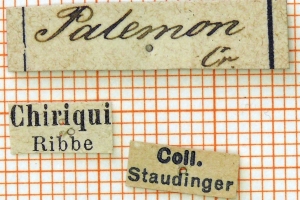 Palemon
Cr.
Chiriqui
Ribbe
Coll.
Staudinger